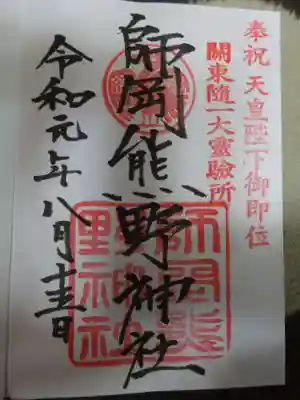 奉祝 天皇陛下御即位
關東隨一大靈驗所
師岡熊野神社
令和元年八月十五日
師岡熊
野神社